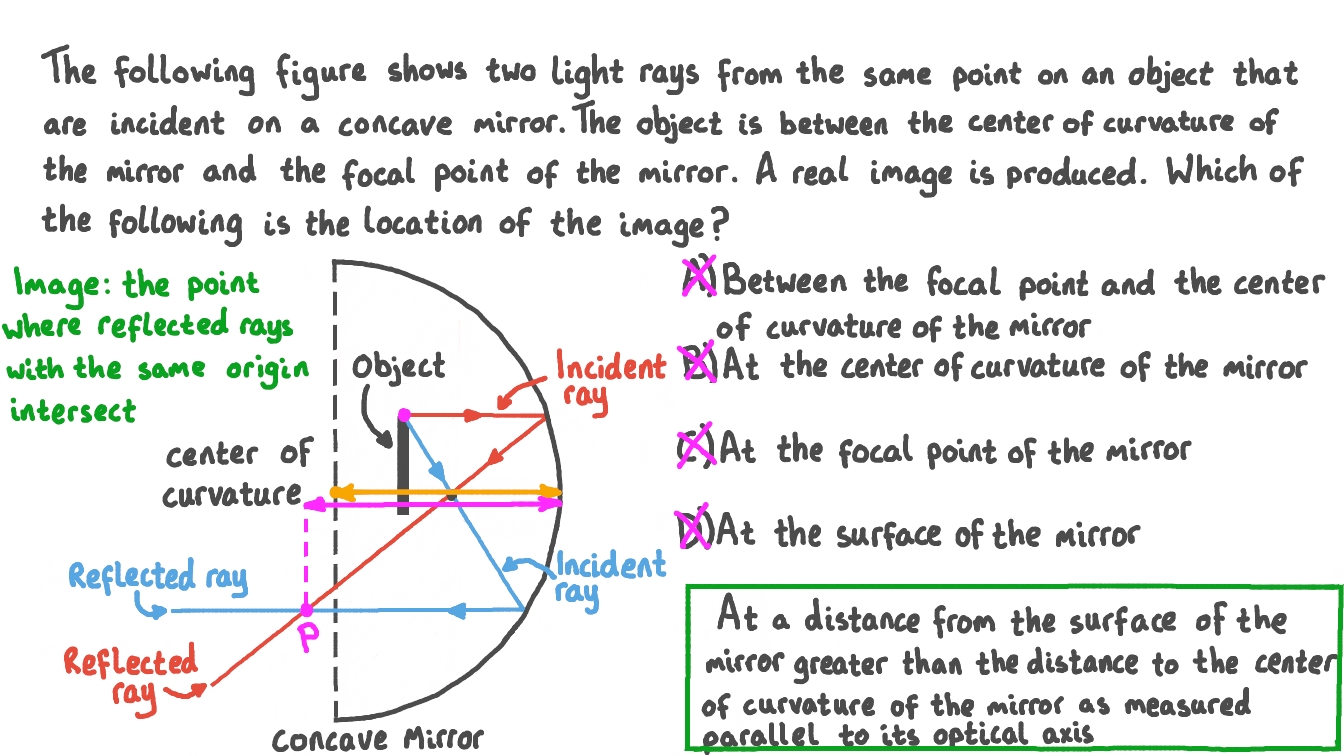 The following figure shows two light rays from the same point on an object that
are incident on a concave mirror. The object is between the center of curvature of
the mirror and the focal point of the mirror. A real image is produced. Which of
the following is the location of the image?
Image: the point
where reflected rays
with the same origin
intersect
Object
Incident
ray
center of
curvature
Reflected ray
P
Reflected
ray
Incident
ray
Concave Mirror
A) Between the focal point and the center
of curvature of the mirror
B) At the center of curvature of the mirror
C) At the focal point of the mirror
D) At the surface of the mirror
At a distance from the surface of the
mirror greater than the distance to the center
of curvature of the mirror as measured
parallel to its optical axis